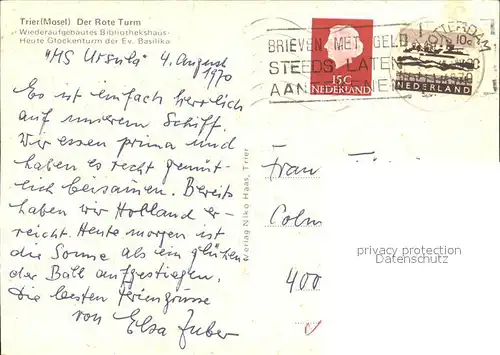 Trier(Mosel) Der Rote Turm
Wiederaufgebautes Bibliothekshaus-
Heute Glockenturm der Ev. Basilika
"MS Ursula" 4. August
1970
Es ist einfach herrlich
auf unserem Schiff.
Wir essen prima und
haben es recht gemüt-
lich beisammen. Bereits
haben wir Holland er-
reicht. Heute morgen ist
die Sonne als ein glühen
der Ball aufgestiegen.
Die besten Feriengrüsse
von Elsa Zuber
Verlag Niko Haas, Trier
BRIEVEN MET GELD
STEEDS LATEN
AAN
15C
NEDERLAND
ROTTERDAM
10c
NEDERLAND
Frau
Colm
400
privacy protection
Datenschutz